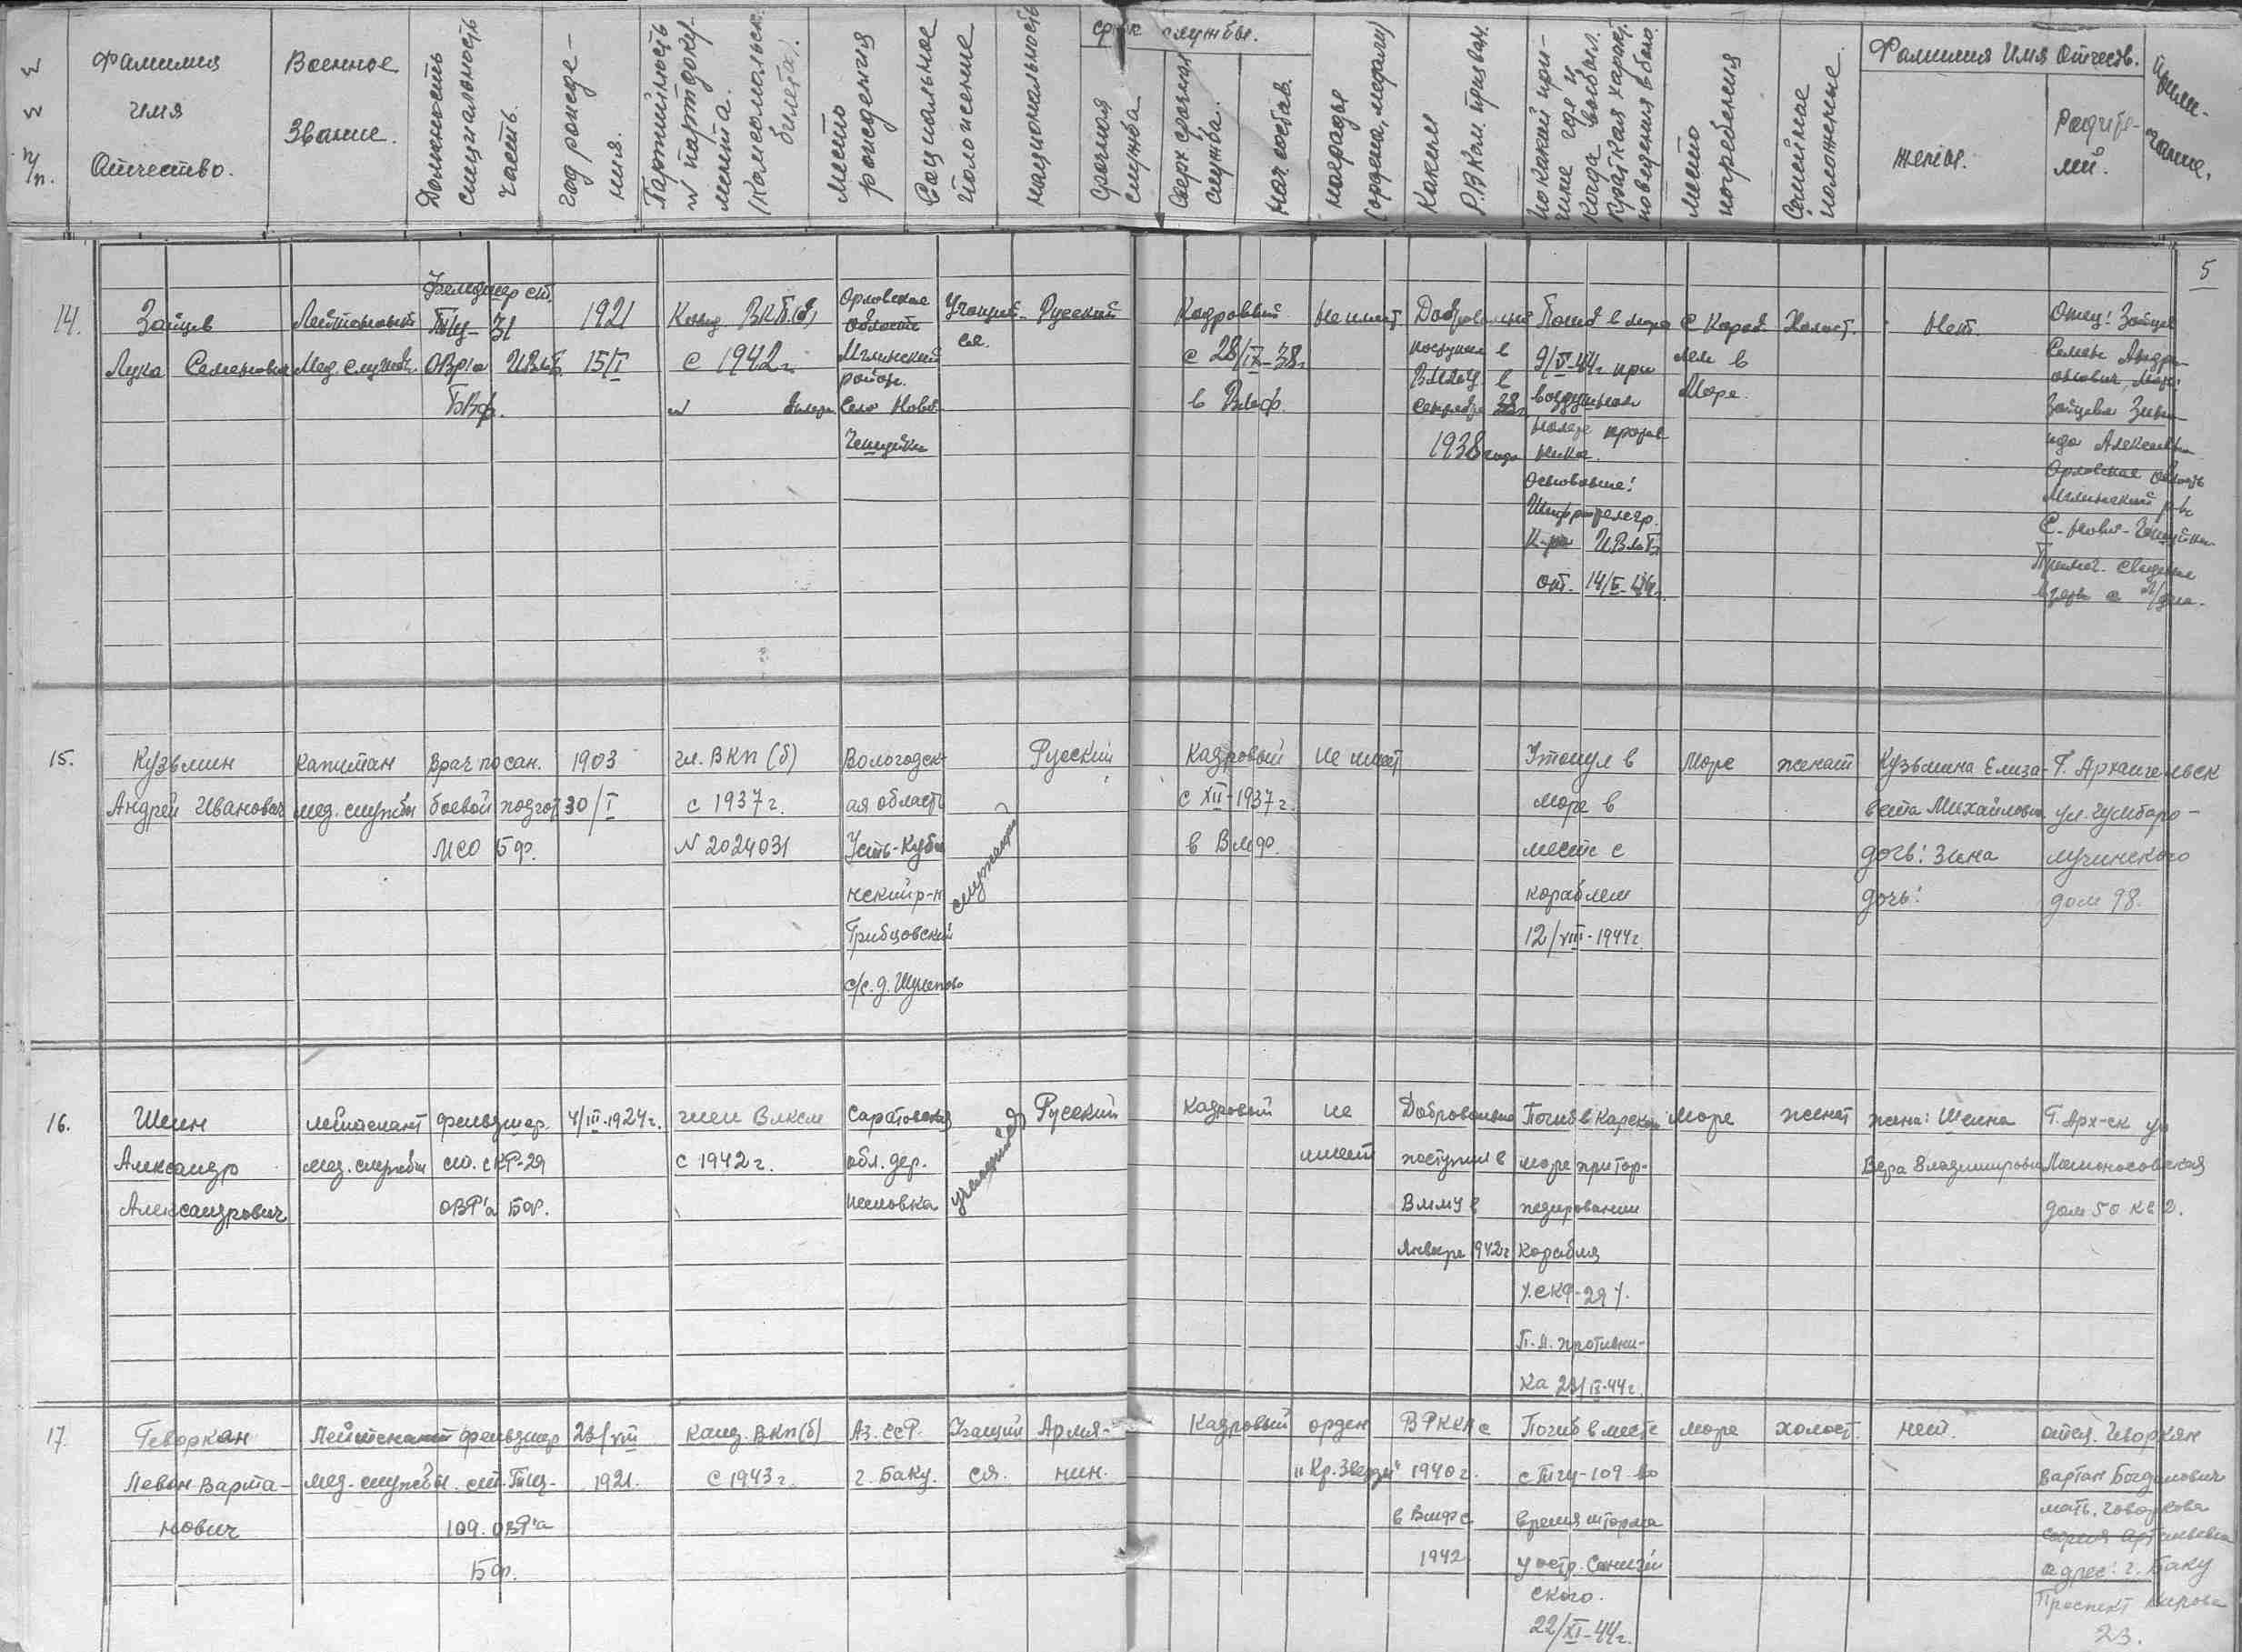 №№ п/п.
Фамилия
имя
Отчество.
Военное
Звание.
Должность
специальность
часть.
год рожде-
ния.
Партийность
№ партдоку-
мента.
(Комсомольск.
билета).
Место
рождения
Социальное
положение
национальность
срок службы.
Срочная
служба
Сверх срочная
служба.
нач состав.
награды
(ордена, медали)
Каким
Р.В.Ком. призван.
по какой при-
чине где и
когда выбыл.
Краткая характ.
поведения в бою.
место
погребения
Семейное
положение.
Фамилия Имя Отчеств.
жены.
Родите-
лей.
Приме-
чание.
5
14.
Зайцев
Лука Семенович
Лейтенант
Мед. службы
Фельдшер ст.
Тщ-31
ОВРа
БВф.
1921
15/I
Канд. ВКП(б)
с 1942 г.
№
Орловская
область
Мглинский
район.
Село Новая
Чешуйка
Учащий-
ся.
Русский
Кадровый
с 28/IX-38г.
в Вмф.
Не имеет
Добровольно
поступил в
в
сентябре
1938 года
Погиб в море
9/V-44г. при
воздушном
налете против-
ника.
Основание!
Шифротелегр.
К-ра
от. 14/V-44г.
С кораб-
лем в
Море.
Холост.
Нет.
Отец! Зайцев
Семен Андри-
анович, мать!
Зайцева Зина-
ида Алексеевна
Орловская область
Мглинский р-н
С. Новая-Чешуйка
15.
Кузьмин
Андрей Иванович
Капитан
мед. службы
Врач по сан.
боевой подгот
МСО БФ.
1903
30/I
чл. ВКП (б)
с 1937 г.
№ 2024031
Вологодск-
ая область
Усть-Куби
нский р-н
Грибцовский
с/с. д.
служащий
Русский
Кадровый
с XII-1937 г.
в Вмф.
Не имеет
Утонул в
море в
месте с
кораблем
12/VIII-1944г.
море
женат
Кузьмина Елиза-
вета Михайловна
дочь! Зина
дочь!
Г. Архангельск
ул. Чумбаро-
лучинского
дом 98.
16.
Шеин
Александр
Александрович
лейтенант
мед. службы
фельдшер.
СКР-29
ОВР'а БФ.
4/III.1924г.
член Влксм
с 1942 г.
Саратовская
обл. дер.
учащийся
Русский
Кадровый
не
имеет
Добровольно
поступил в
ВММУ в
Январе 1942г
Погиб в Карском
море при тор-
педировании
корабля
/.СКР-29/.
П.Л. противни-
ка
море
женат
жена: Шеина
Вера Владимировна
Г. Арх-ск ул
Ломоносовская
дом 50 кв 2.
17
Геворкян
Левон Варта-
нович
Лейтенант
мед. службы.
фельдшер
ст. Тщ-
109. ОВР'а
БФ.
23/VIII
1921.
Канд. ВКП(б)
С 1943 г.
Аз. ССР.
г. Баку.
Учащий
ся.
Армя-
нин.
Кадровый
орден
"Кр. Звезды"
В РККА с
1940 г.
в Вмф с
1942
Погиб в месте
с Тщ-109 во
время шторма
у остр.
ского.
22/XI-44г.
море
холост.
нет.
отец.
Вартан Богданович
мать.
адрес: г. Баку
Проспект Кирова
23.